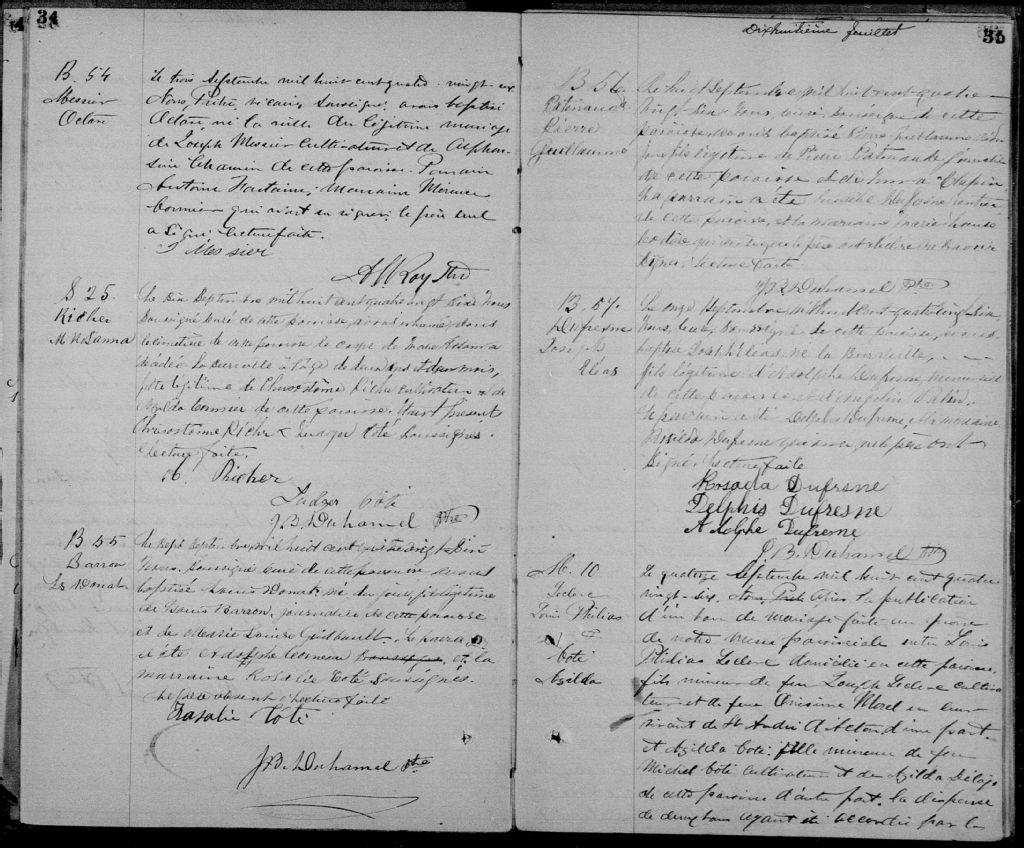 34
B. 54
Messier
Octave
Le trois Septembre mil huit cent quatre-vingt-six
Nous, Prêtre, vicaire, soussigné, avons baptisé
Octave, né la veille du légitime mariage
de Joseph Messier cultivateur et de Alphon-
sine de cette paroisse. Parrain
Antoine Fontaine, Marraine
qui n'ont su signer; le père seul
a signé. Lecture faite.
J Messier
A Roy Ptre
S 25.
Richer
M Rosanna
Le six Septembre mil huit cent quatre vingt six, Nous
soussigné curé de cette paroisse, avons inhumé dans
le cimetière de cette paroisse le corps de Marie Rosanna
décédée la surveille à l'âge de deux ans et deux mois,
fille légitime de Chrisostôme Richer cultivateur & de
Azilda Cormier de cette paroisse. Etaient présents
Chrisostome Richer & Ludger Coté soussignés.
Lecture faite.
Richer
Ludger Coté
J B. Duhamel Ptre
B 55
Barron
Ls Donat
Le sept Septembre mil huit cent quatre vingt six
Nous soussigné curé de cette paroisse avons
baptisé Louis Donat né du jour, fils légitime
de Louis Barron, journalier de cette paroisse
et de Marie Louise Guilbault. Le parrain
a été Adolphe et la
marraine Rosalie Coté soussignés.
Le père absent. Lecture faite
Rosalie Coté
J B. Duhamel Ptre
Dixhuitième feuillet
35
B 56
Patenaude
Pierre
Guillaume
Le huit Septembre mil huit cent quatre-
vingt-six Nous, curé, soussigné de cette
paroisse, avons baptisé Pierre Guillaume né
fils légitime de Pierre Patenaude journalier
de cette paroisse et de
Le parrain a été Dufresne rentier
de cette paroisse, et la marraine Marie Louise
qui ainsi que le père ont déclaré ne savoir
signer. Lecture faite
J B Duhamel Ptre
B. 57.
Dufresne
Josep
Eléas
Le onze Septembre mil huit cent quatrevingt six
Nous, curé, soussigné de cette paroisse, avons
baptisé Joseph Eléas, né la surveille,
fils légitime d'Adolphe Dufresne, menuisier
de cette paroisse et d'
Le parrain a été Delphis Dufresne, & la marraine
Dufresne qui ainsi que le père ont
signé. Lecture faite
Rosalia Dufresne
Delphis Dufresne
Adolphe Dufresne
J B. Duhamel Ptre
M. 10
Leclerc
Louis Philias
et
Coté
Azilda
Le quatorze Septembre mil huit cent quatre
vingt-six, Après la publication
d'un ban de mariage faite au prône
de notre messe paroissiale entre Louis
Philias Leclerc domicilié en cette paroisse,
fils mineur de feu Joseph Leclerc cultiva-
teur et de feue Onésime Morel en leur
vivant de St André d'Acton d'une part.
et Azilda Coté fille mineure de feu
Michel Coté cultivateur et de Azilda
de cette paroisse d'autre part. la dispense
de deux bans ayant été accordée par le